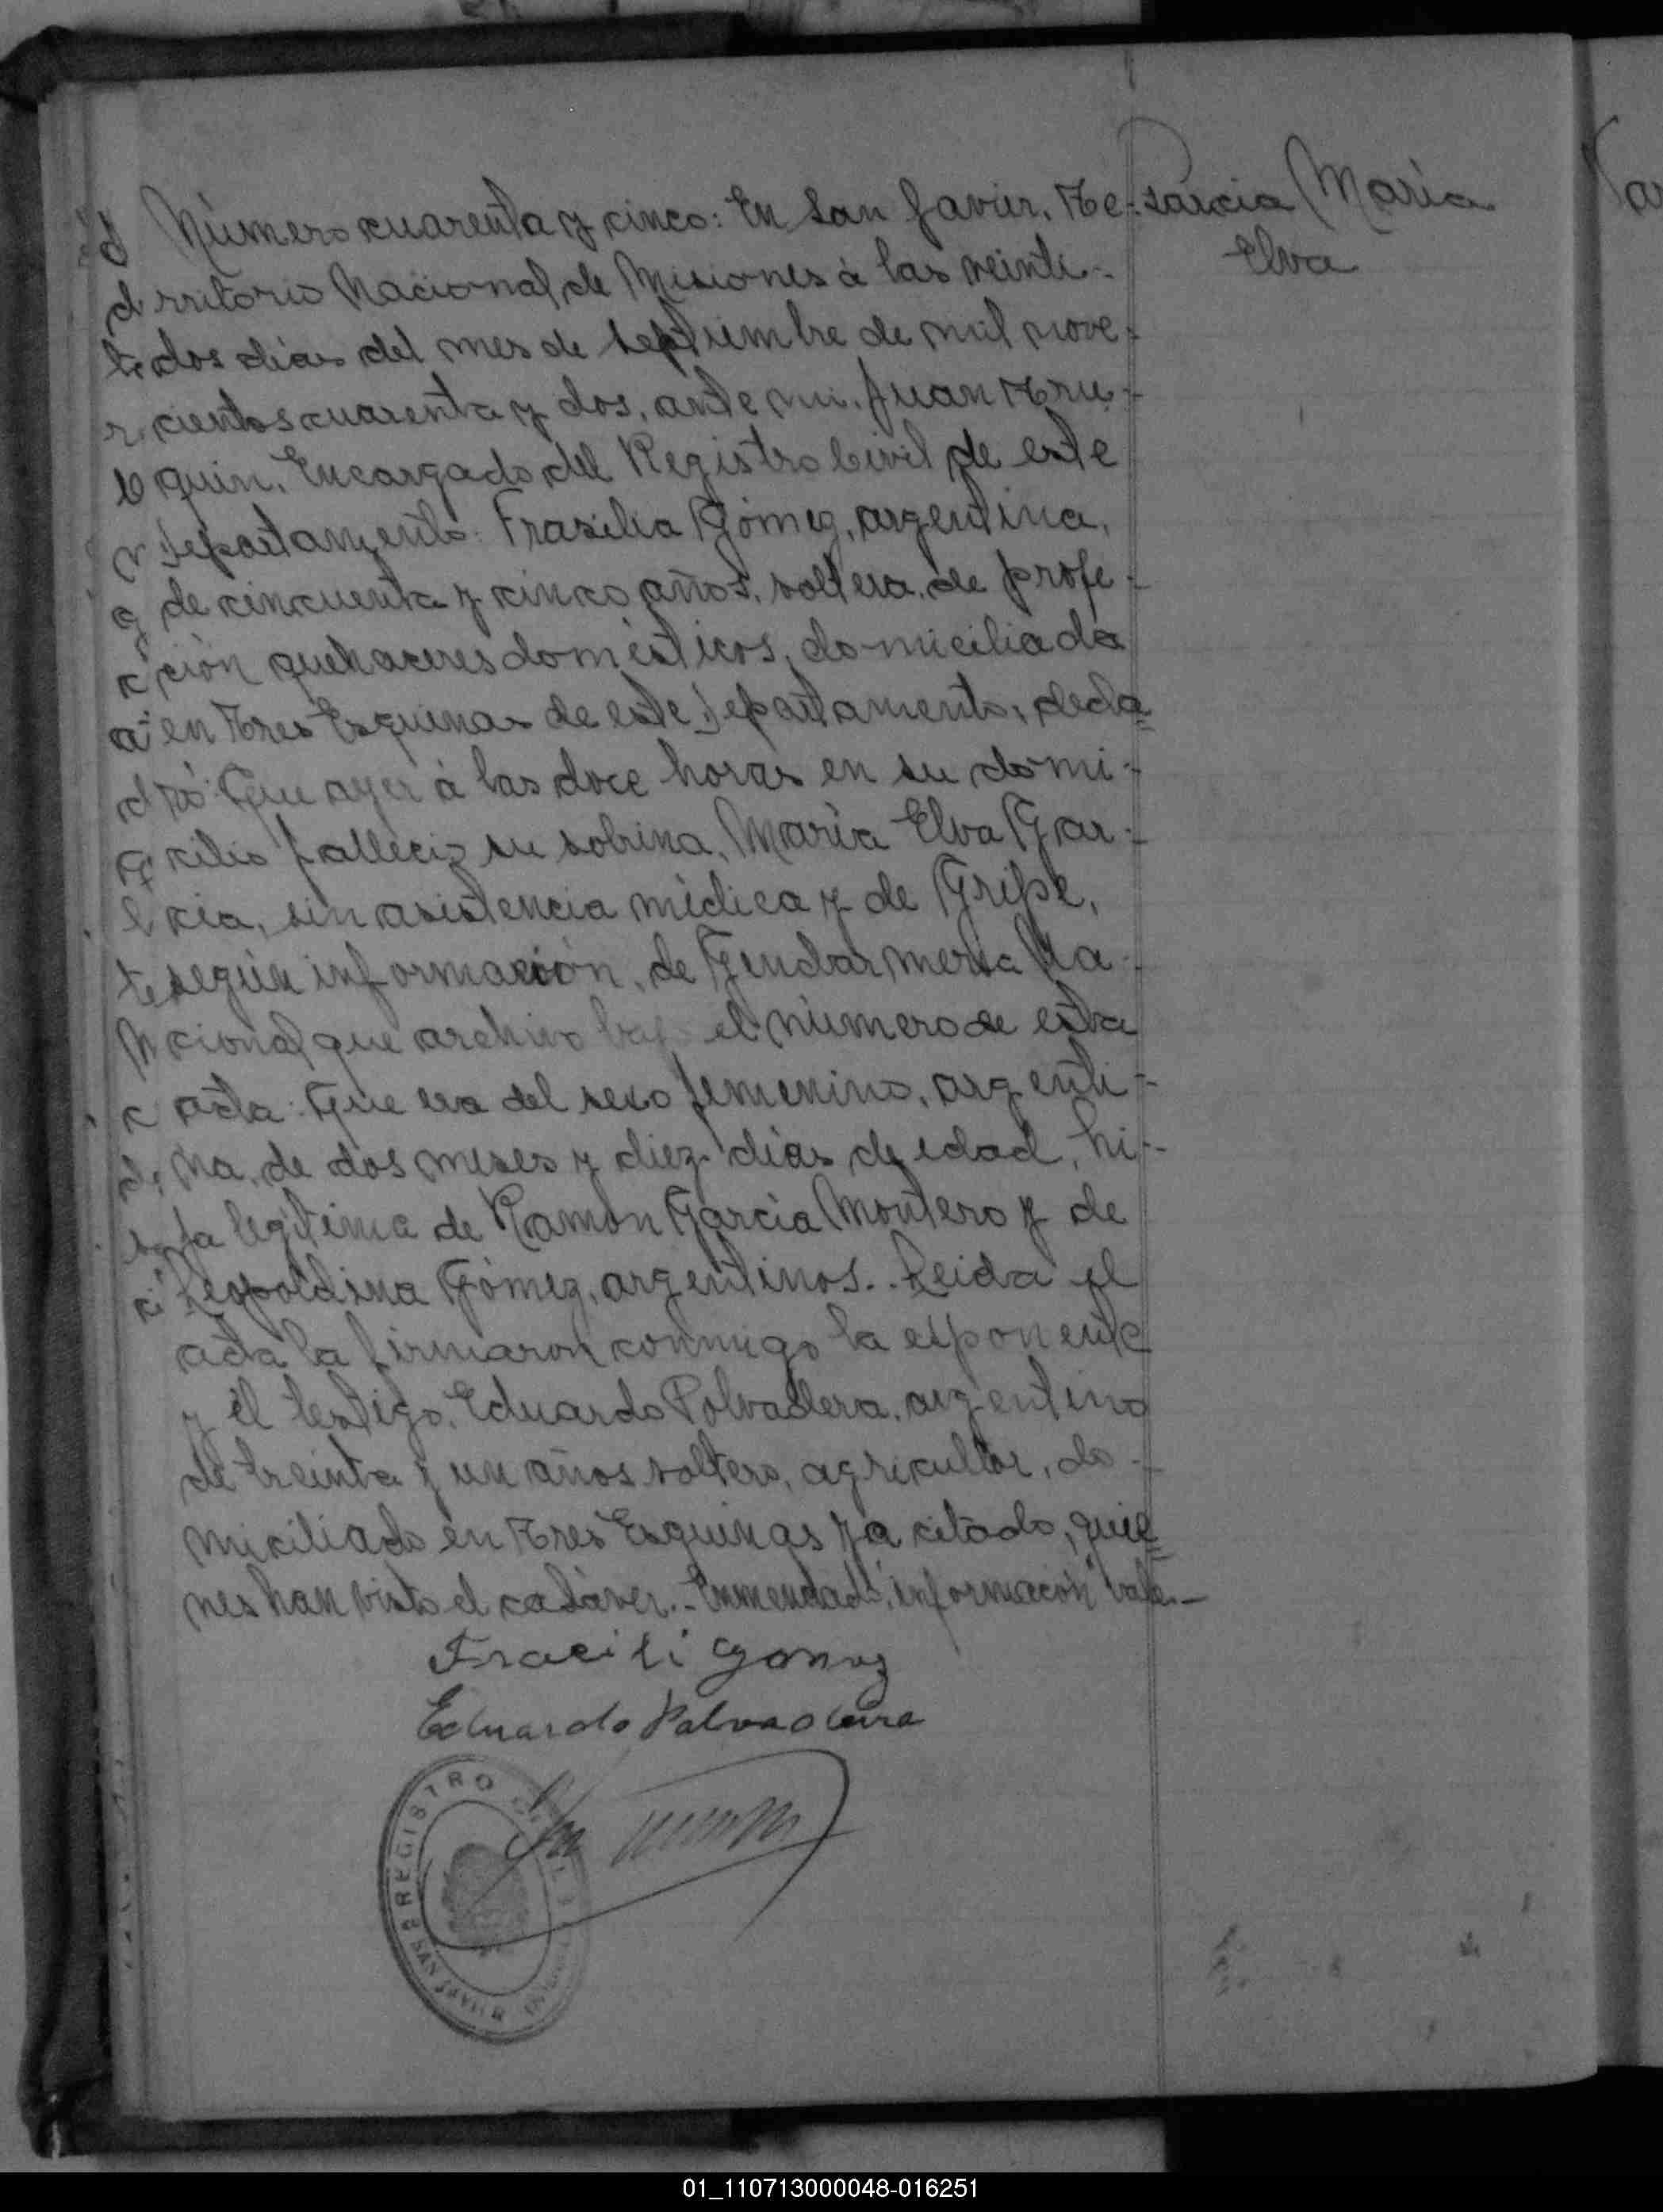 Número cuarenta y cinco: En San Javier, Te-
García María
Elva
rritorio Nacional de Misiones à las veinti-
dos dias del mes de Septiembre de mil nove-
cientos cuarenta y dos, ante mi, Juan Tru-
quin, Encargado del Registro Civil de este
Departamento: Frasilia Gómez, argentina,
de cincuenta y cinco años, soltera, de profe-
ción quehaceres domésticos, domiciliada
en Tres Esquinas de este Departamento, decla=
ró: Que ayer à las doce horas en su domi-
cilio falleció su sobrina, María Elva Gar-
cia, sin asistencia mèdica y de Gripe,
según información, de Gendarmeria Na-
cional que archivo bajo el número de esta
acta: Que era del sexo femenino, argenti-
na, de dos meses y diez dias de edad, hi-
ja legitima de Ramón García Montero y de
Leopoldina Gómez, argentinos.. Leida el
acta la firmaron conmigo la exponente
y el testigo, Eduardo Polvadera, argentino
de treinta y un años soltero, agricultor, do-
miciliado en Tres Esquinas ya citado, quie=
nes han visto el cadáver.- Enmendado: "información" vale.-
Fracili Gomez
Eduardo Palvadeira
REGISTRO CIVIL
SAN JAVIER
01_110713000048-016251